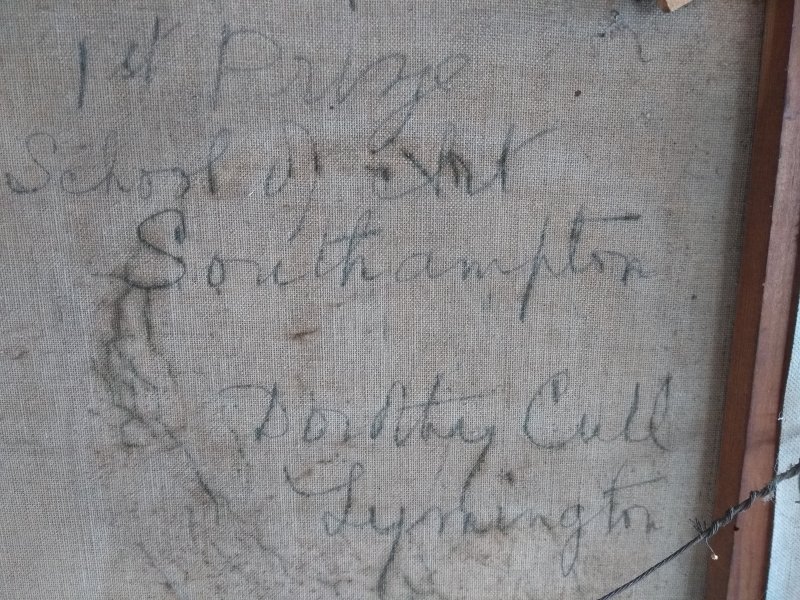 1st Prize
School of Art
Southampton
Dorothy Cull
Lymington